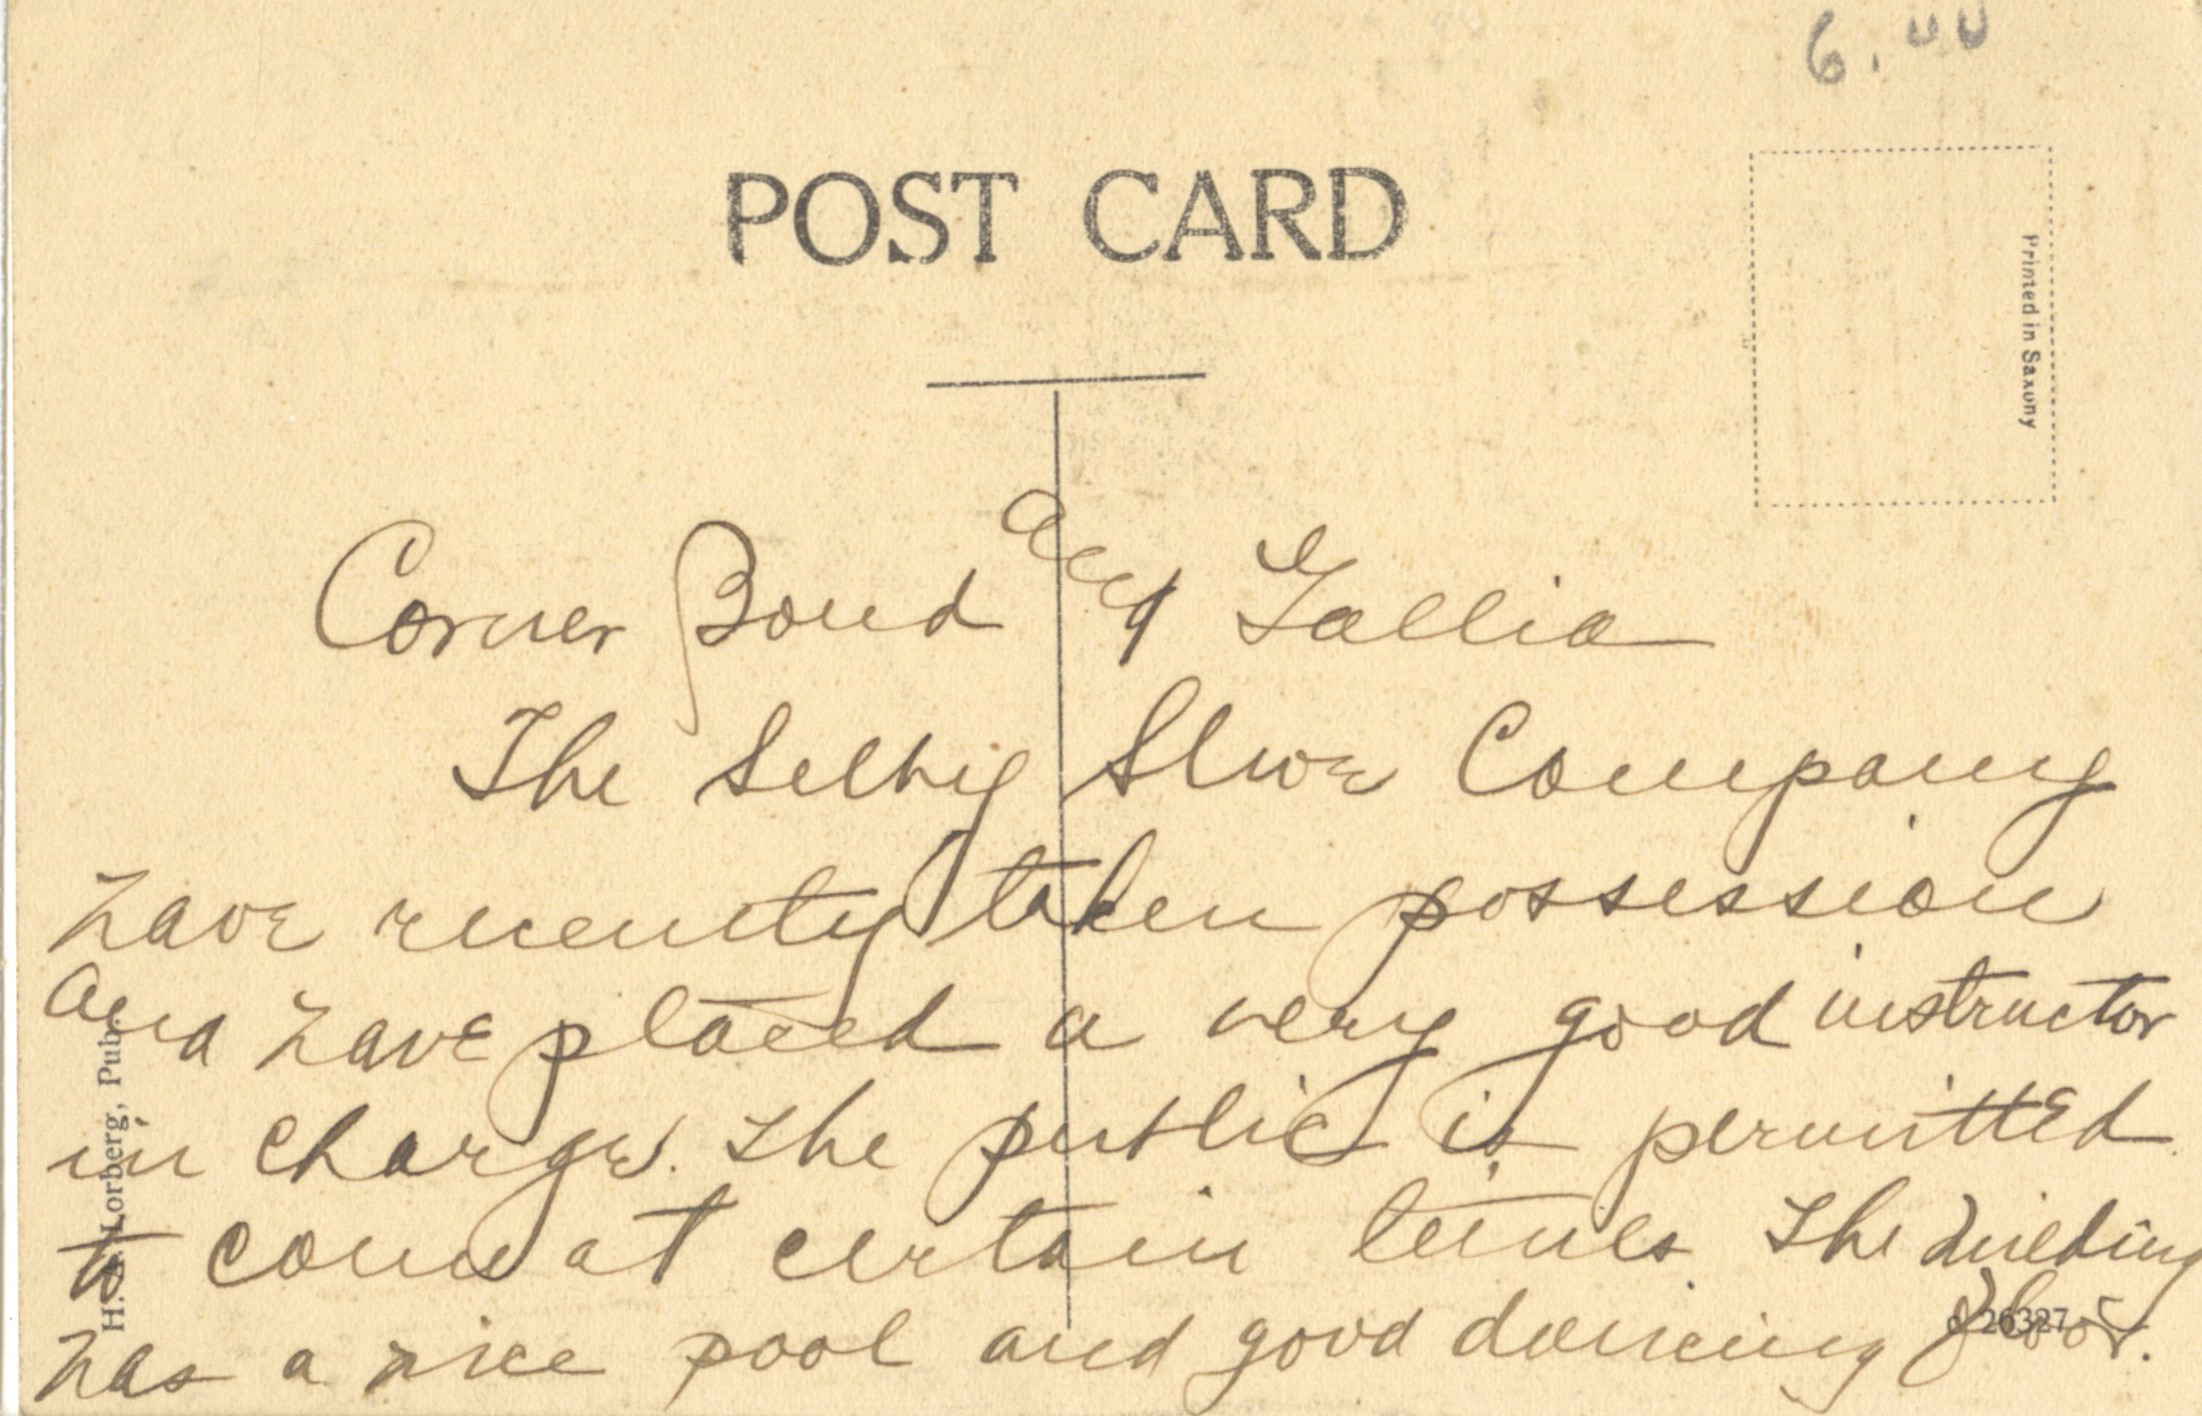 6.00
POST CARD
Printed in Saxony
Corner Bond and Gallia
The Selby Shoe Company
have recently taken possession
and have placed a very good instructor
in charge. The public is permitted
to come at certain times The building
has a nice pool and good dancing floor.
H. A. Lorberg, Pub.
26327